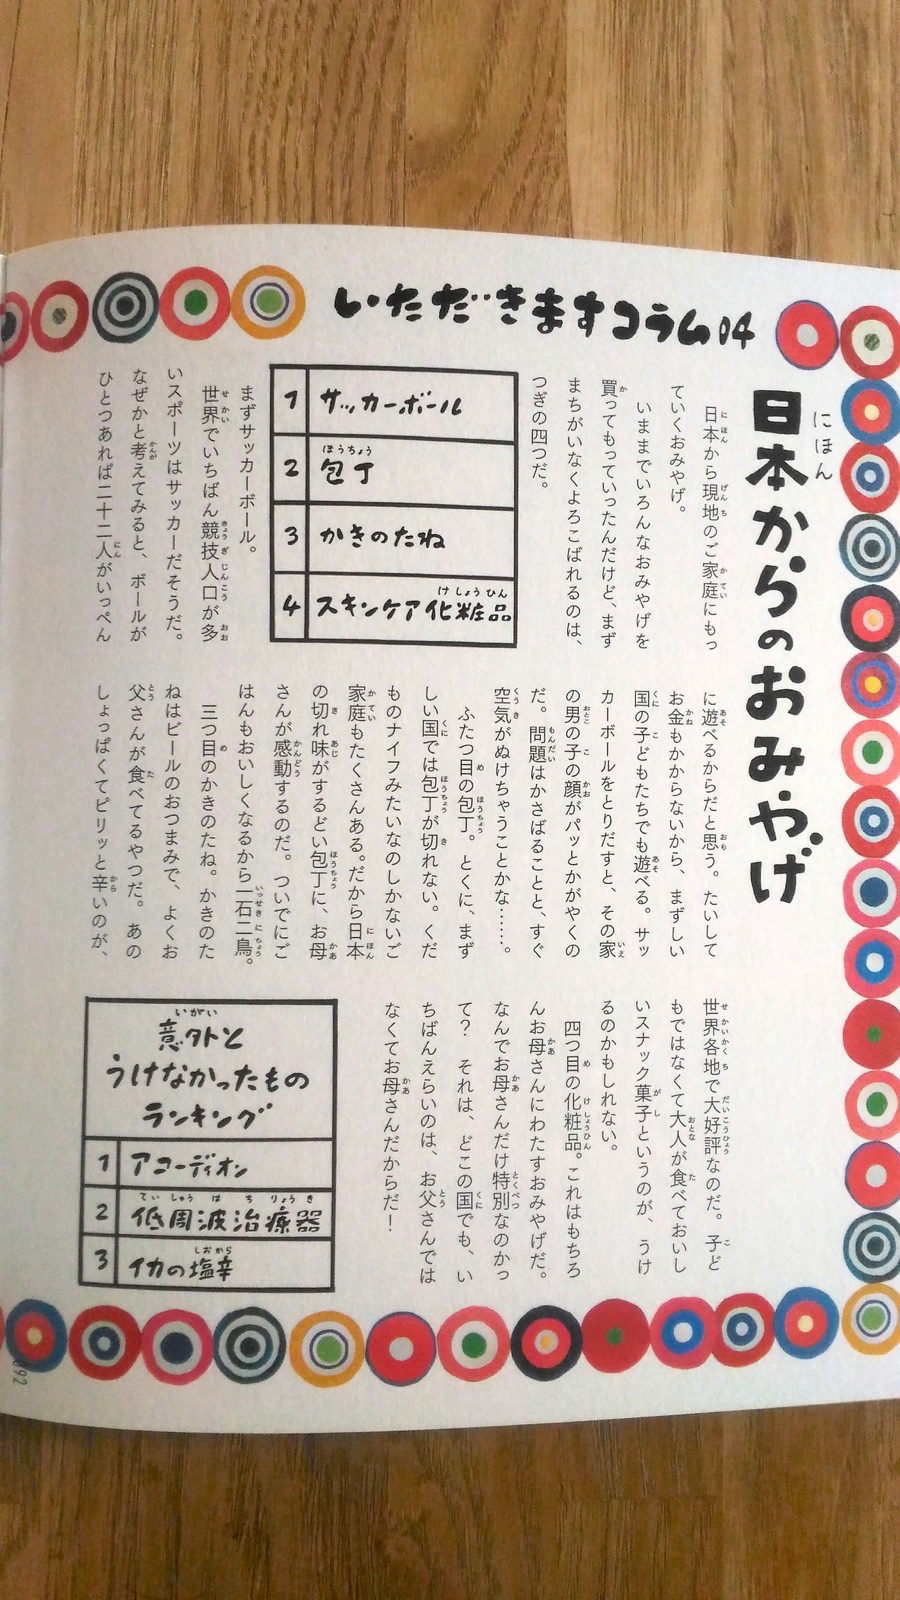 いただきますコラム04
日本からのおみやげ
にほん
日本から現地のご家庭にもっ
ていくおみやげ。
いままでいろんなおみやげを
買ってもっていったんだけど、まず
まちがいなくよろこばれるのは、
つぎの四つだ。
1 サッカーボール
2 包丁
3 かきのたね
4 スキンケア化粧品
まずサッカーボール。
世界でいちばん競技人口が多
いスポーツはサッカーだそうだ。
なぜかと考えてみると、ボールが
ひとつあれば二十二人がいっぺん
に遊べるからだと思う。たいして
お金もかからないから、まずしい
国の子どもたちでも遊べる。サッ
カーボールをとりだすと、その家
の男の子の顔がパッとかがやくの
だ。問題はかさばることと、すぐ
空気がぬけちゃうことかな……。
ふたつ目の包丁。とくに、まず
しい国では包丁が切れない。くだ
ものナイフみたいなのしかないご
家庭もたくさんある。だから日本
の切れ味がするどい包丁に、お母
さんが感動するのだ。ついでにご
はんもおいしくなるから一石二鳥。
三つ目のかきのたね。かきのた
ねはビールのおつまみで、よくお
父さんが食べてるやつだ。あの
しょっぱくてピリッと辛いのが、
世界各地で大好評なのだ。子ど
もではなくて大人が食べておいし
いスナック菓子というのが、うけ
るのかもしれない。
四つ目の化粧品。これはもちろ
んお母さんにわたすおみやげだ。
なんでお母さんだけ特別なのかっ
て？　それは、どこの国でも、い
ちばんえらいのは、お父さんでは
なくてお母さんだからだ！
意外と
うけなかったもの
ランキング
1 アコーディオン
2 低周波治療器
3 イカの塩辛
092